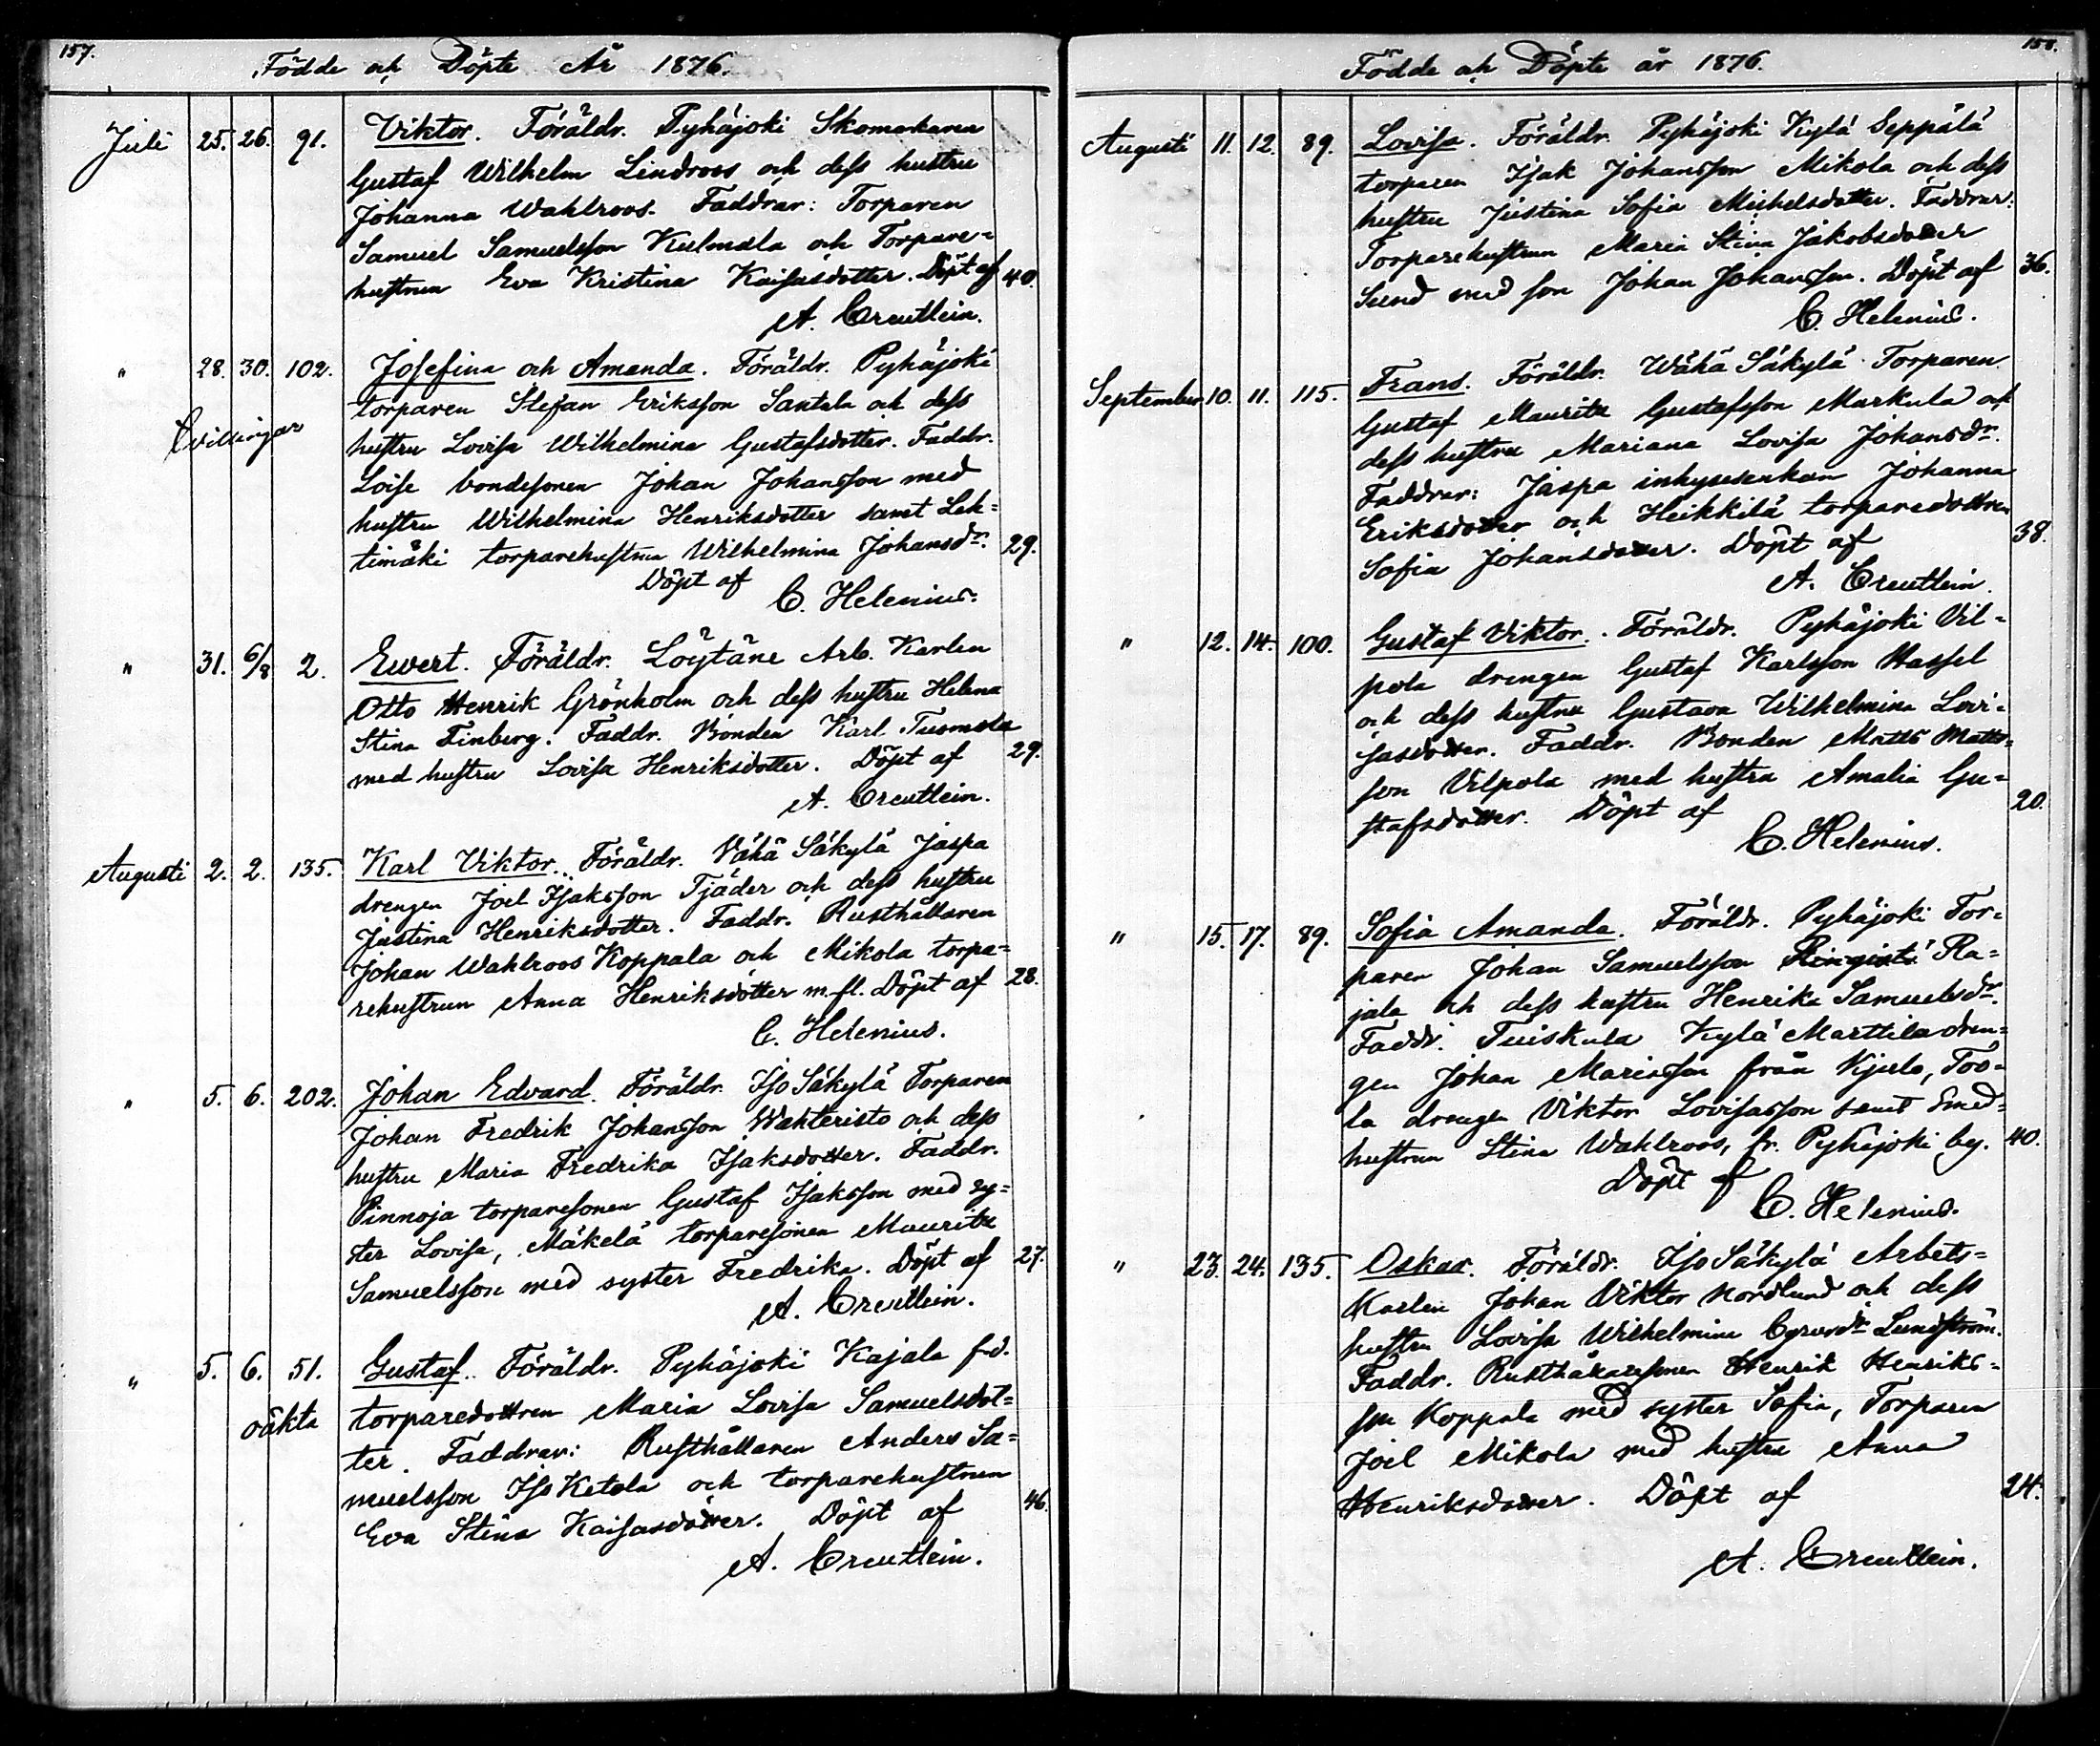 157.
Födde och Döpte År 1876.
Juli 25. 26. 91. Viktor. Föräldr. Pyhäjoki Skomakaren
Gustaf Wilhelm Lindroos och dess hustru
Johanna Wahlroos. Faddrar: Torparen
Samuel Samuelsson Kulmala och Torpare=
hustrun Eva Kristina Kaisasdotter. Döpt af 40.
A. Creutlein.
" 28. 30. 102. Josefina och Amanda. Föräldr. Pyhäjoki
torparen Stefan Eriksson Santala och dess
Tvillingar
hustru Lovisa Wilhelmina Gustafsdotter. Faddr.
bondesonen Johan Johansson med
hustru Wilhelmina Henriksdotter samt Leh=
timäki torparehustrun Wilhelmina Johansdr. 29.
Döpt af
C. Helenius.
" 31. 6/8 2. Ewert. Föräldr. Löytäne Arb. Karlen
Otto Henrik Grönholm och dess hustru Helena
Stina Finberg. Faddr. Bonden Karl Tuomola
med hustru Lovisa Henriksdotter. Döpt af 29.
A. Creutlein.
Augusti 2. 2. 135. Karl Viktor. Föräldr. Vähä Säkylä Jaspa
drengen Joel Isaksson Tjäder och dess hustru
Justina Henriksdotter. Faddr. Rusthållaren
Johan Wahlroos Koppala och Mikola torpa=
rehustrun Anna Henriksdotter m. fl. Döpt af 28.
C. Helenius.
" 5. 6. 202. Johan Edvard. Föräldr. Iso Säkylä Torparen
Johan Fredrik Johansson Wahteristo och dess
hustru Maria Fredrika Isaksdotter. Faddr.
Pinnoja torparesonen Gustaf Isaksson med sy=
ster Lovisa, Mäkelä torparesonen Mauritz
Samuelsson med syster Fredrika. Döpt af 27.
A. Creutlein.
" 5. 6. 51. Gustaf. Föräldr. Pyhäjoki Kajala f.d.
oäkta torparedottren Maria Lovisa Samuelsdot=
ter. Faddrar: Rusthållaren Anders Sa=
muelsson Iso Ketola och torparehustrun
Eva Stina Kaisasdotter. Döpt af 46.
A. Creutlein.
158.
Födde och Döpte år 1876.
Augusti 11. 12. 89. Lovisa. Föräldr. Pyhäjoki Kylä Seppälä
torparen Isak Johansson Mikola och dess
hustru Justina Sofia Michelsdotter. Faddrar:
Torparehustrun Maria Stina Jakobsdotter
Sund med son Johan Johansson. Döpt af 36.
C. Helenius.
September 10. 11. 115. Frans. Föräldr. Wähä Säkylä Torparen
Gustaf Mauritz Gustafsson Markula och
dess hustru Mariana Lovisa Johansdr.
Faddrar: Jaspa inhysesenkan Johanna
Eriksdotter och Heikkilä torparedottren
Sofia Johansdotter. Döpt af 38.
A. Creutlein.
" 12. 14. 100. Gustaf Viktor. Föräldr. Pyhäjoki Vil=
pola drengen Gustaf Karlsson Hassel
och dess hustru Gustava Wilhelmina Lovi=
sasdotter. Faddr. Bonden Matts Matts=
son Vilpola med hustru Amalia Gu=
stafsdotter. Döpt af 20.
C. Helenius.
" 15. 17. 89. Sofia Amanda. Föräldr. Pyhäjoki Tor=
paren Johan Samuelsson Ra=
jala och dess hustru Henrika Samuelsdr.
Faddr. Tuiskula Kylä Marttila dren=
gen Johan Mariasson från Kjulo, Too=
la drengen Viktor Lovisasson samt Smed=
hustrun Stina Wahlroos, fr. Pyhäjoki by. 40.
Döpt af
C. Helenius.
" 23. 24. 135. Oskar. Föräldr. Iso Säkylä Arbets=
Karlen Johan Viktor Nordlund och dess
hustru Lovisa Wilhelmina Lundström.
Faddr. Rusthållaresonen Henrik Henriks=
son Koppala med syster Sofia, Torparen
Joel Mikola med hustru Anna
Henriksdotter. Döpt af 24.
A. Creutlein.